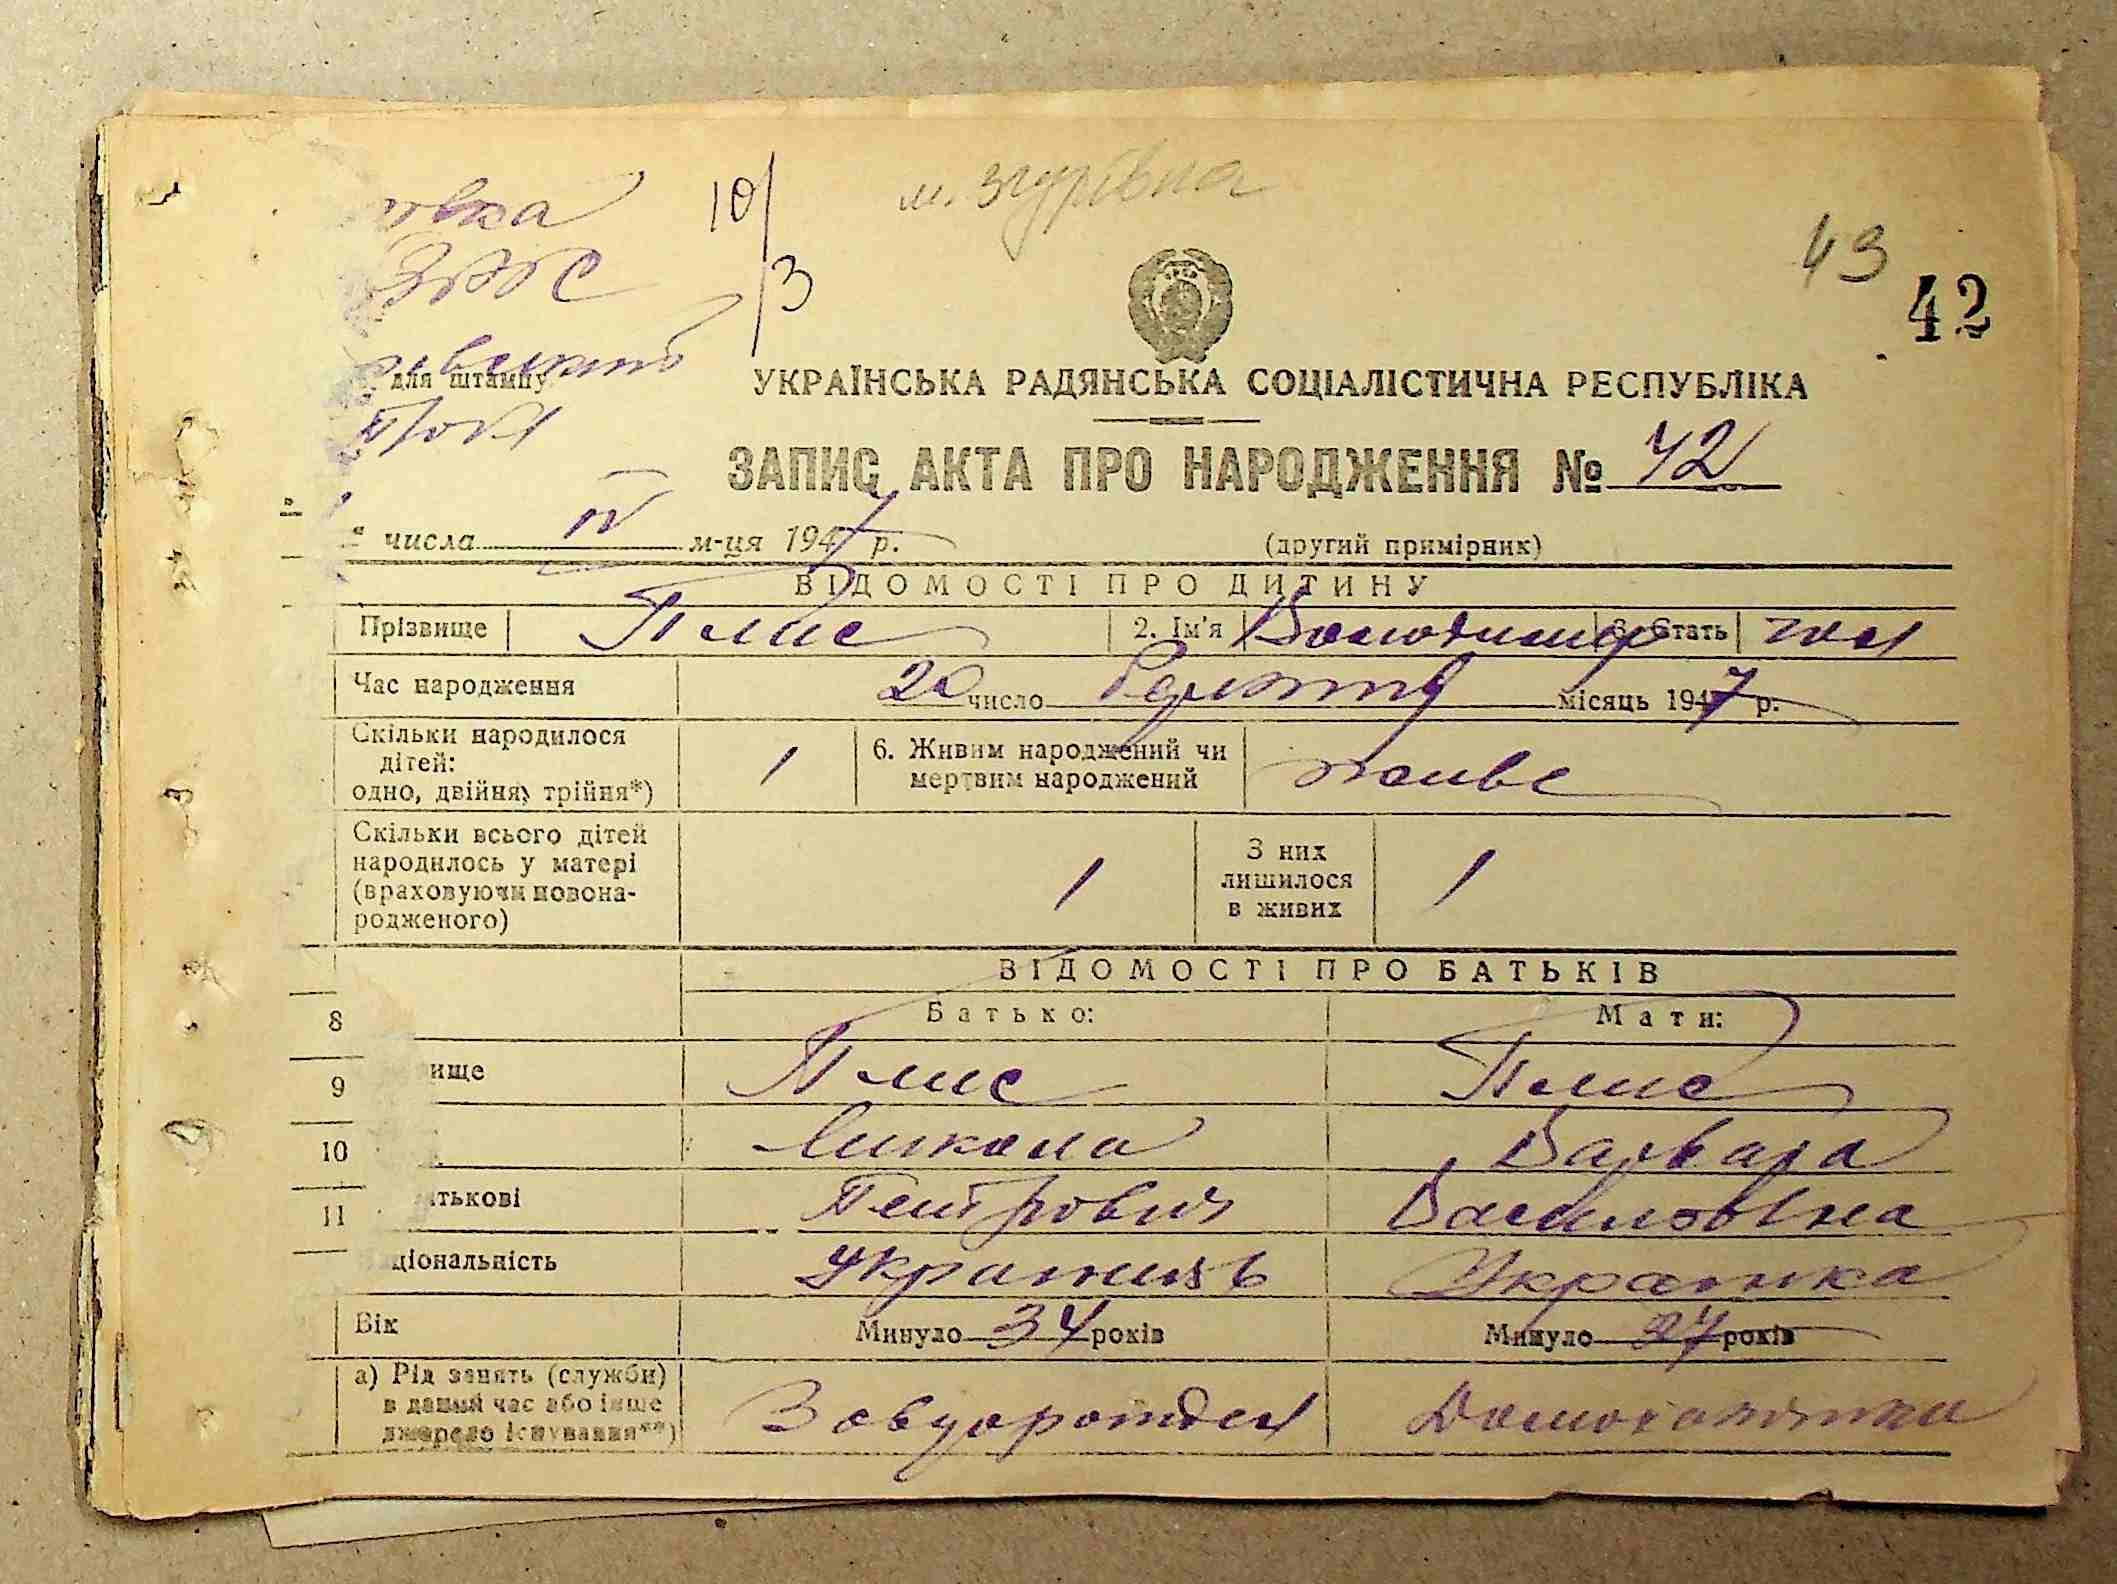 м. Згурівка
овка 10/3
ЗАГС
43
42
для штампу
УКРАЇНСЬКА РАДЯНСЬКА СОЦІАЛІСТИЧНА РЕСПУБЛІКА
ЗАПИС АКТА ПРО НАРОДЖЕННЯ № 42
" числа IV м-ця 1947 р. (другий примірник)
ВІДОМОСТІ ПРО ДИТИНУ
Прізвище Плис 2. Ім'я Володимир 3. Стать чол
Час народження 20 число березня місяць 1947 р.
Скільки народилося
дітей:
одно, двійня, трійня*) 1 6. Живим народжений чи
мертвим народжений живе
Скільки всього дітей
народилось у матері
(враховуючи новона-
родженого) 1 З них
лишилося
в живих 1
ВІДОМОСТІ ПРО БАТЬКІВ
8 Батько: Мати:
9 ище Плис Плис
10 Микола Варвара
11 тькові Петрович Василівна
ціональність Українець Українка
Вік Минуло 34 років Минуло 27 років
а) Рід занять (служби)
в даний час або інше
джерело існування**) Домохазяйка